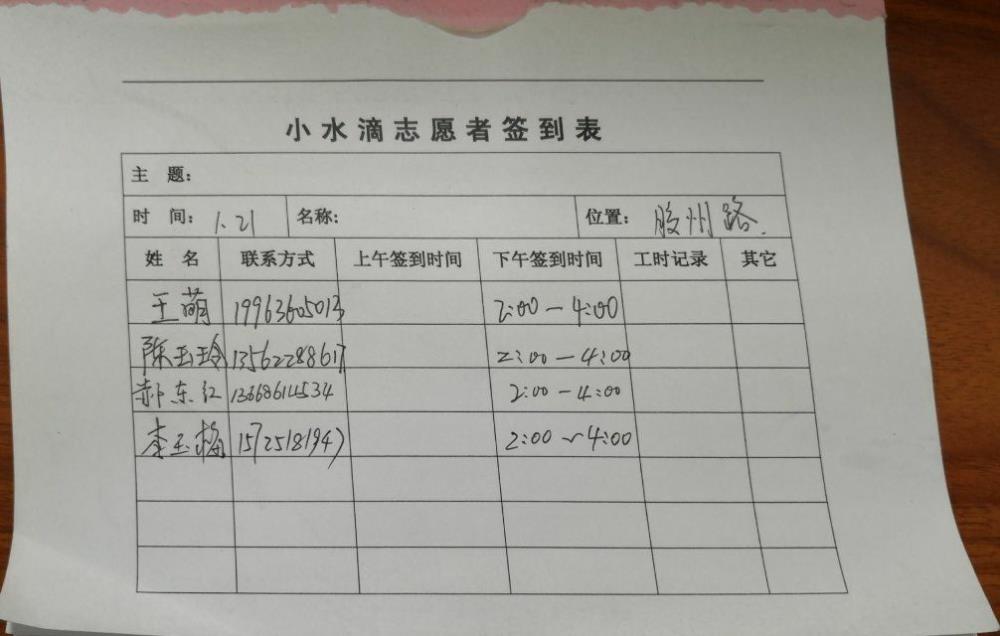 小水滴志愿者签到表
主 题:
时 间: 1.21 名称: 位置: 胶州路.
姓 名 联系方式 上午签到时间 下午签到时间 工时记录 其它
王萌 19963605013 2:00-4:00
陈玉玲 13562288617 2:00-4:00
郝东红 13668614534 2:00-4:00
李玉梅 15725181947 2:00~4:00